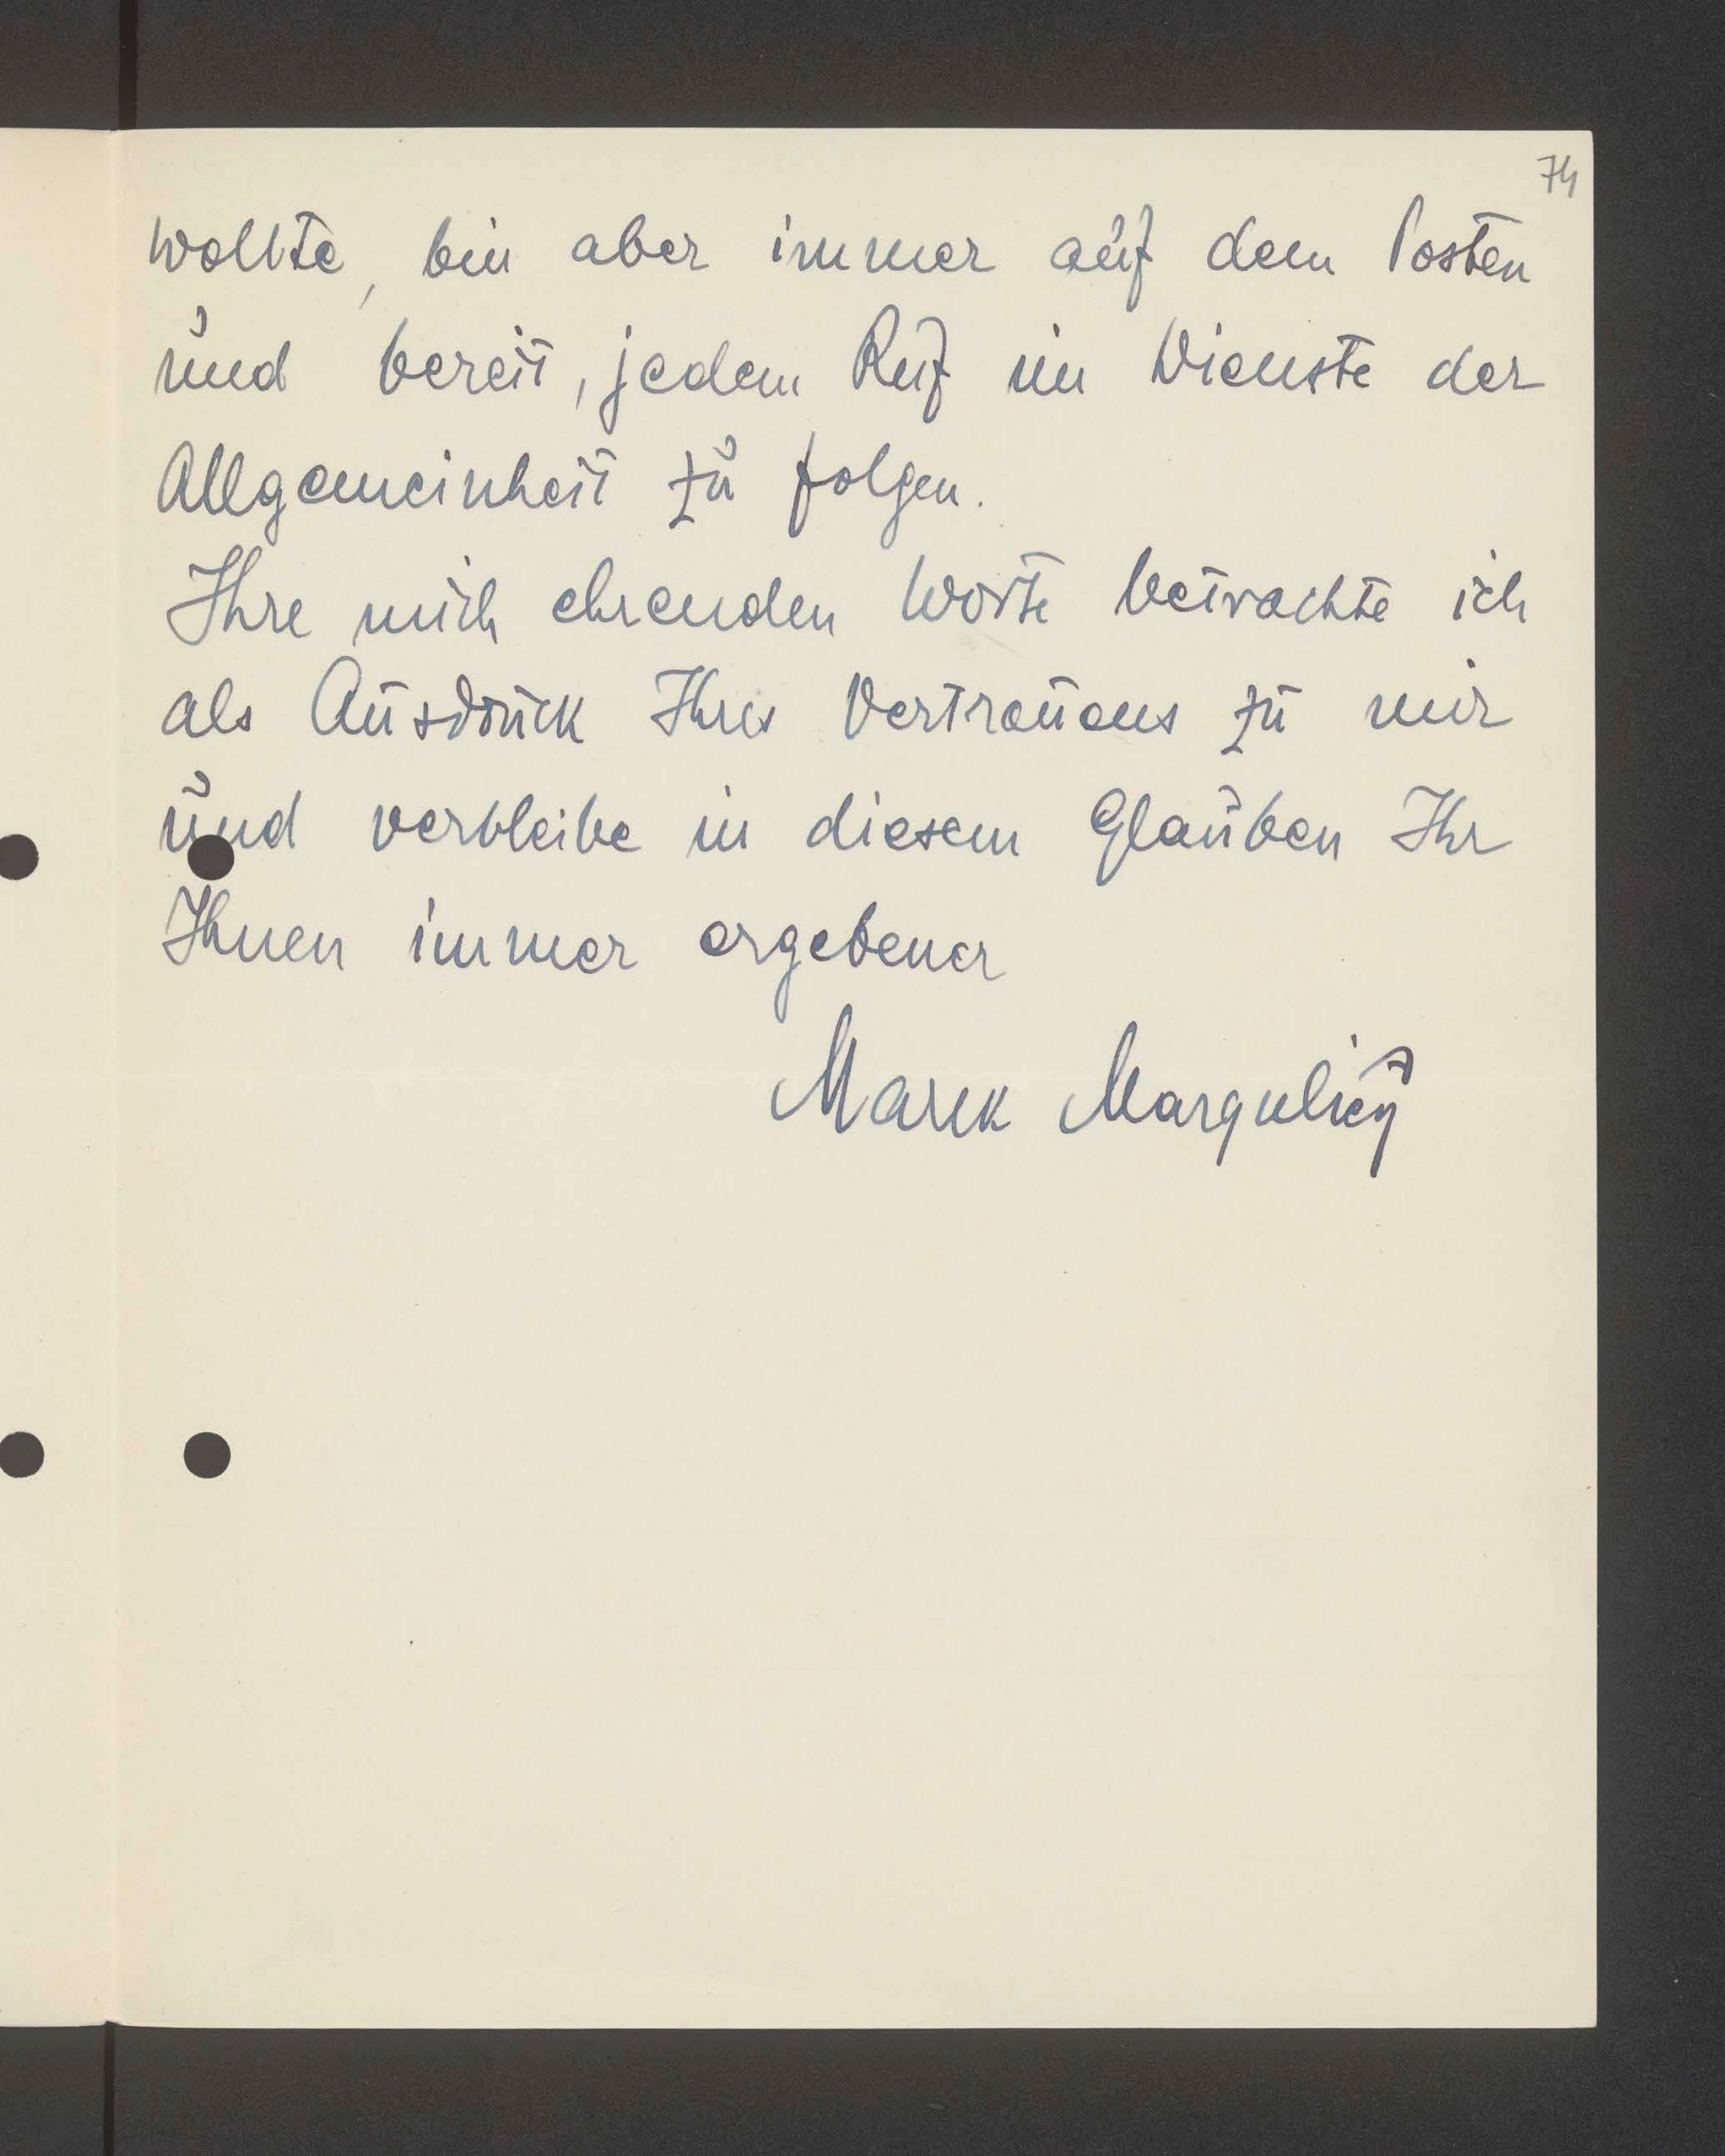 74
wollte, bin aber immer auf dem Posten
und bereit, jedem Ruf im Dienste der
Allgemeinheit zu folgen.
Ihre mich ehrenden Worte betrachte ich
als Ausdruck Ihres Vertrauens zu mir
und verbleibe in diesem Glauben Ihr
Ihnen immer ergebener
Marek Margulies